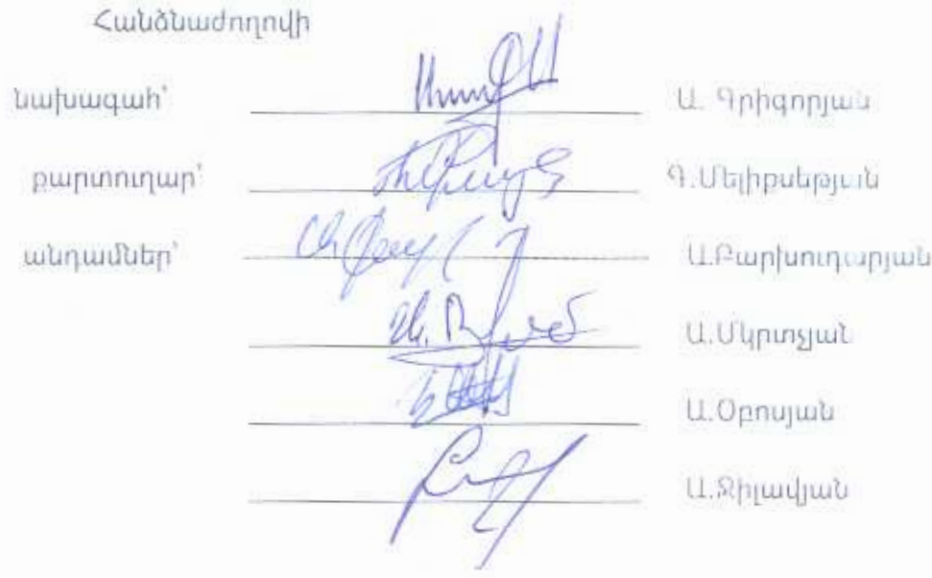 Հանձնաժողովի
նախագահ՝ Ա. Գրիգորյան
քարտուղար՝ Գ.Մելիքսեթյան
անդամներ՝ Ա.Բարխուդարյան
Ա.Մկրտչյան
Ա.Օբոսյան
Ա.Ջիլավյան